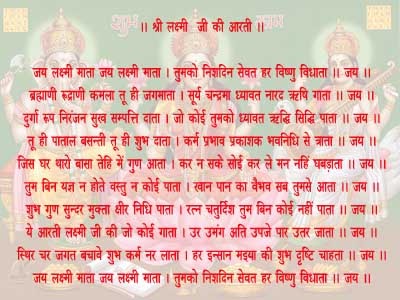 शुभ लाभ
।। श्री लक्ष्मी जी की आरती ।।
जय लक्ष्मी माता जय लक्ष्मी माता । तुमको निशदिन सेवत हर विष्णु विधाता ।। जय ।।
ब्रह्माणी रूद्राणी कमला तू ही जगमाता । सूर्य चन्द्रमा ध्यावत नारद ऋषि गाता ।। जय ।।
दुर्गा रूप निरंजन सुख सम्पत्ति दाता । जो कोई तुमको ध्यावत ऋद्धि सिद्धि पाता ।। जय ।।
तू ही पाताल बसन्ती तू ही शुभ दाता । कर्म प्रभाव प्रकाशक भवनिधि से त्राता ।। जय ।।
जिस घर थारो बासा तेहि में गुण आता । कर न सके सोई कर ले मन नहिं घबड़ाता ।। जय ।।
तुम बिन यज्ञ न होते वस्तु न कोई पाता । खान पान का वैभव सब तुमसे आता ।। जय ।।
शुभ गुण सुन्दर मुक्ता क्षीर निधि पाता । रत्न चतुर्दिश तुम बिन कोई नहीं पाता ।। जय ।।
ये आरती लक्ष्मी जी की जो कोई गाता । उर उमंग अति उपजे पार उतर जाता ।। जय ।।
स्थिर चर जगत बचावे शुभ कर्म नर लाता । हर इन्सान मइया की शुभ दृष्टि चाहता ।। जय ।।
जय लक्ष्मी माता जय लक्ष्मी माता । तुमको निशदिन सेवत हर विष्णु विधाता ।। जय ।।